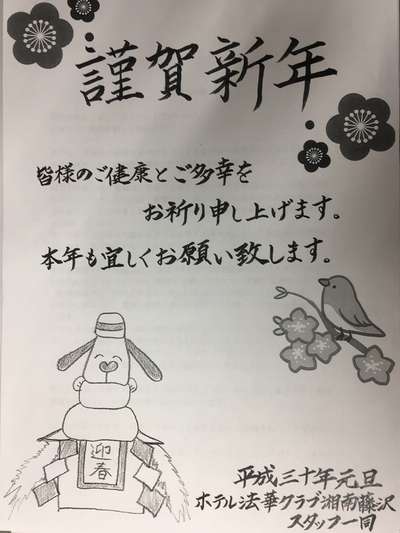 謹賀新年
皆様のご健康とご多幸を
お祈り申し上げます。
本年も宜しくお願い致します。
迎春
平成三十年元旦
ホテル法華クラブ湘南藤沢
スタッフ一同